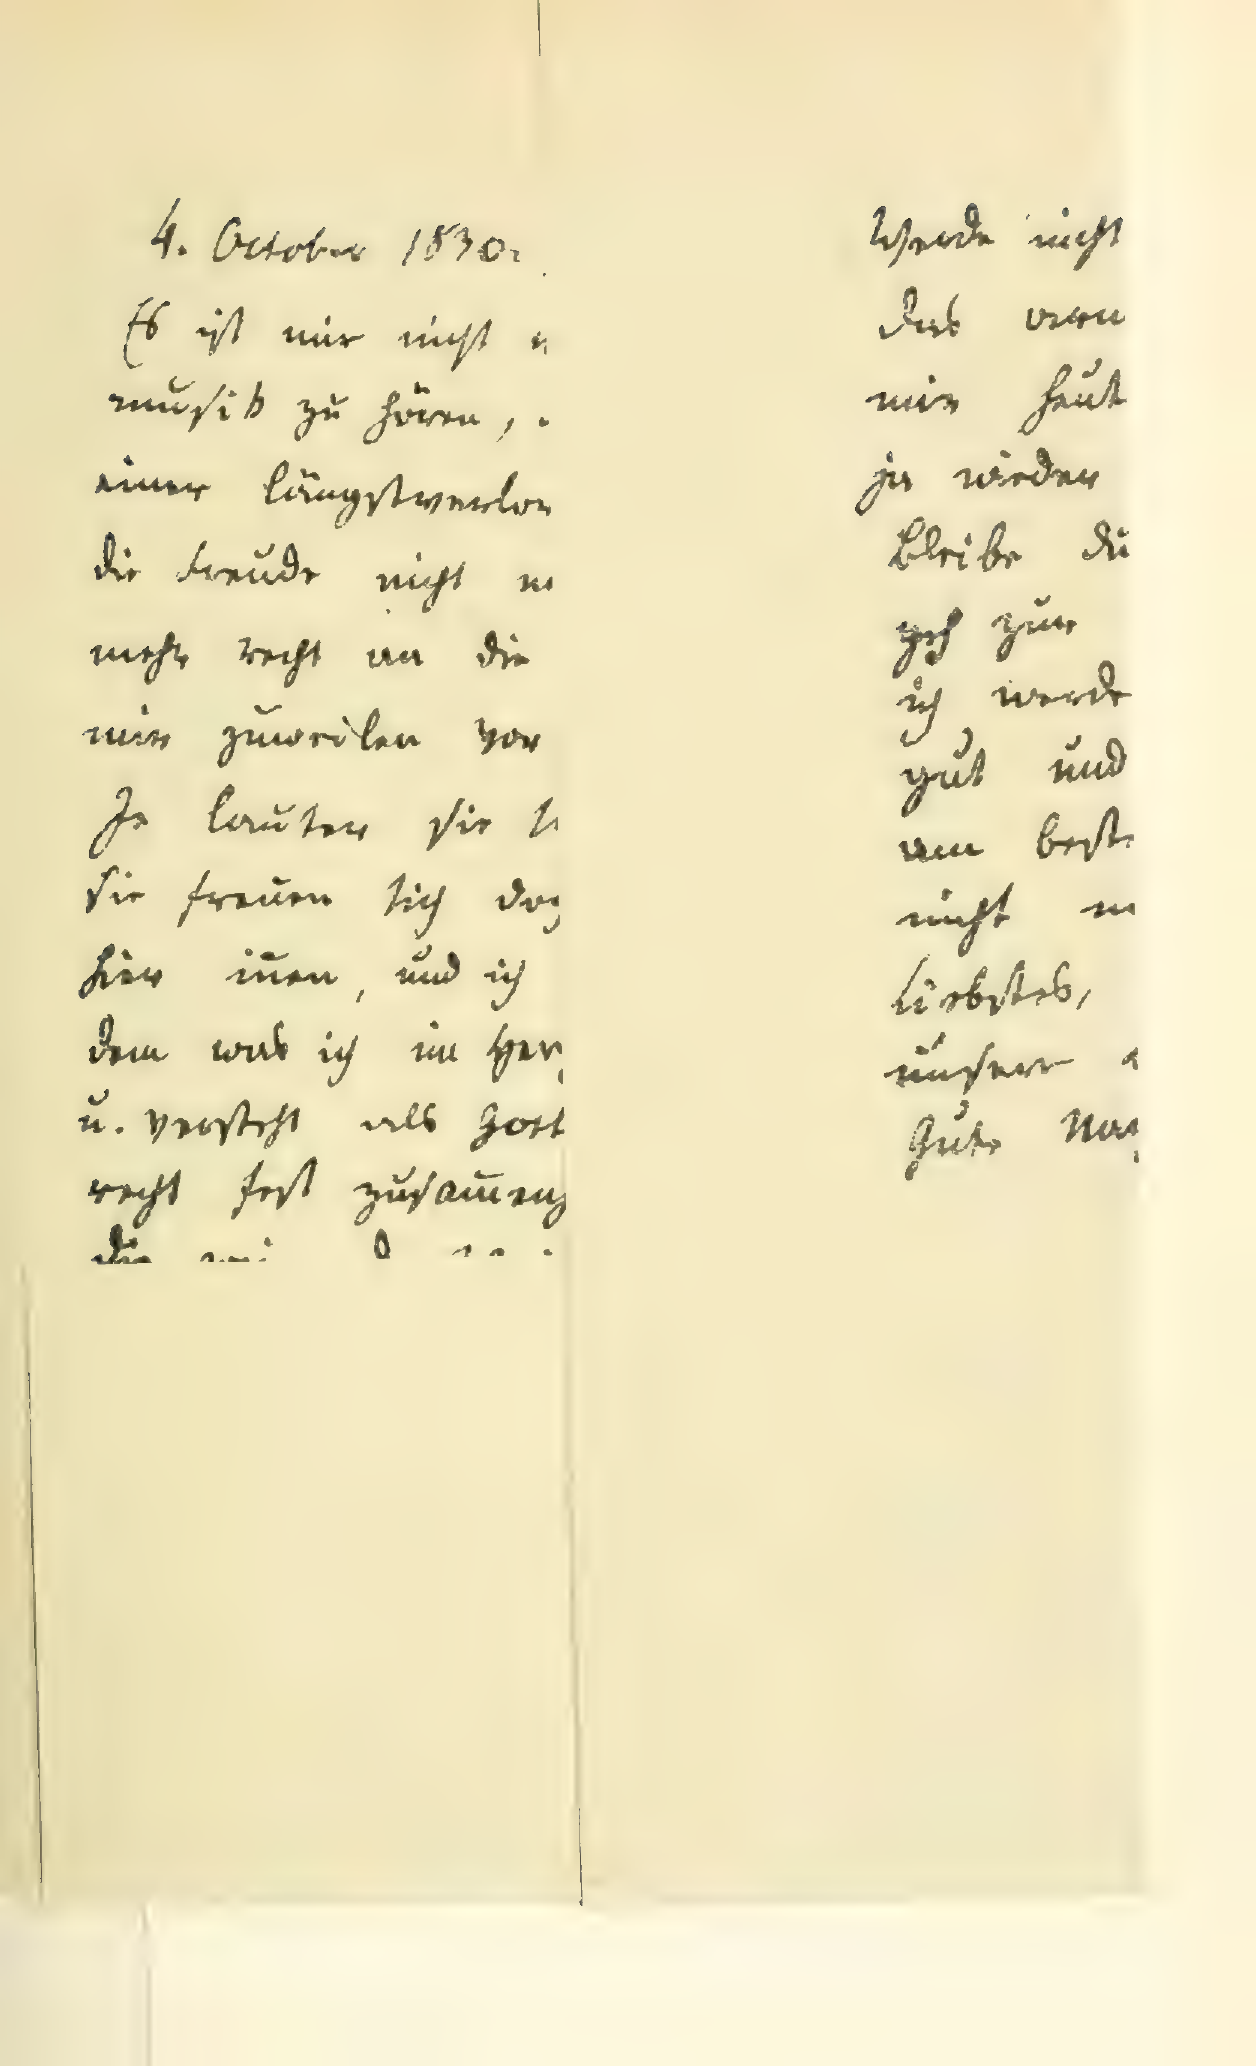 4. October 1830.
Es ist mir nicht
musik zu hören,
einer längstverlor
die Freude nicht m
mehr recht an die
mir zuweilen vor
Je lauter sie
sie freuen sich doch
hier inen, und ich
dem was ich im Herz
u. versteht als Gott
recht fest zusamen
die
Werde nicht
das
mir heut
ja wieder
Bleibe du
geh zur
ich werde
gut und
am beste
nicht m
Liebstes,
unsere
Gute Nac